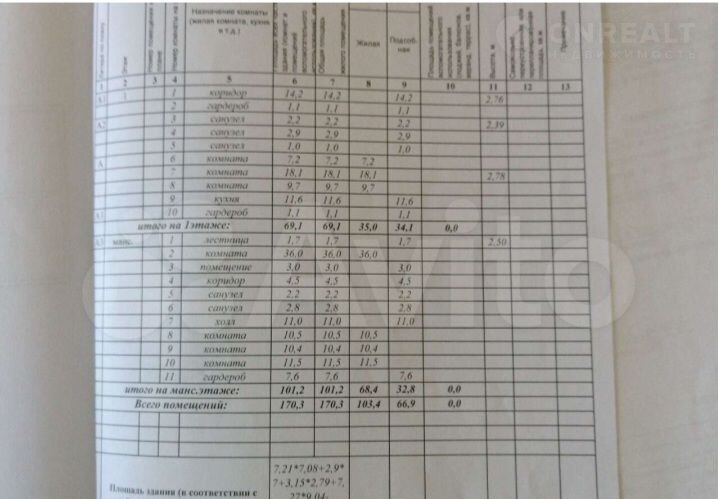 Назначение комнаты
(жилая комната, кухня
и т.д.)
Жилая
Подсоб-
ная
Высота, м
Примечание
1 2 3 4 5 6 7 8 9 10 11 12 13
1 коридор 14,2 14,2 14,2 2,76
2 гардероб 1,1 1,1 1,1
А2 3 санузел 2,2 2,2 2,2 2,39
4 санузел 2,9 2,9 2,9
5 санузел 1,0 1,0 1,0
А 6 комната 7,2 7,2 7,2
7 комната 18,1 18,1 18,1 2,78
8 комната 9,7 9,7 9,7
9 кухня 11,6 11,6 11,6
10 гардероб 1,1 1,1 1,1
итого на 1этаже: 69,1 69,1 35,0 34,1 0,0
А3 манс. 1 лестница 1,7 1,7 1,7 2,50
2 комната 36,0 36,0 36,0
3 помещение 3,0 3,0 3,0
4 коридор 4,5 4,5 4,5
5 санузел 2,2 2,2 2,2
6 санузел 2,8 2,8 2,8
7 холл 11,0 11,0 11,0
8 комната 10,5 10,5 10,5
9 комната 10,4 10,4 10,4
10 комната 11,5 11,5 11,5
11 гардероб 7,6 7,6 7,6
итого на манс.этаже: 101,2 101,2 68,4 32,8 0,0
Всего помещений: 170,3 170,3 103,4 66,9 0,0
7,21*7,08+2,9*
7+3,15*2,79+7,
Площадь здания (в соответствии с 27*9,04-
ONREALT
НЕДВИЖИМОСТЬ
Avito